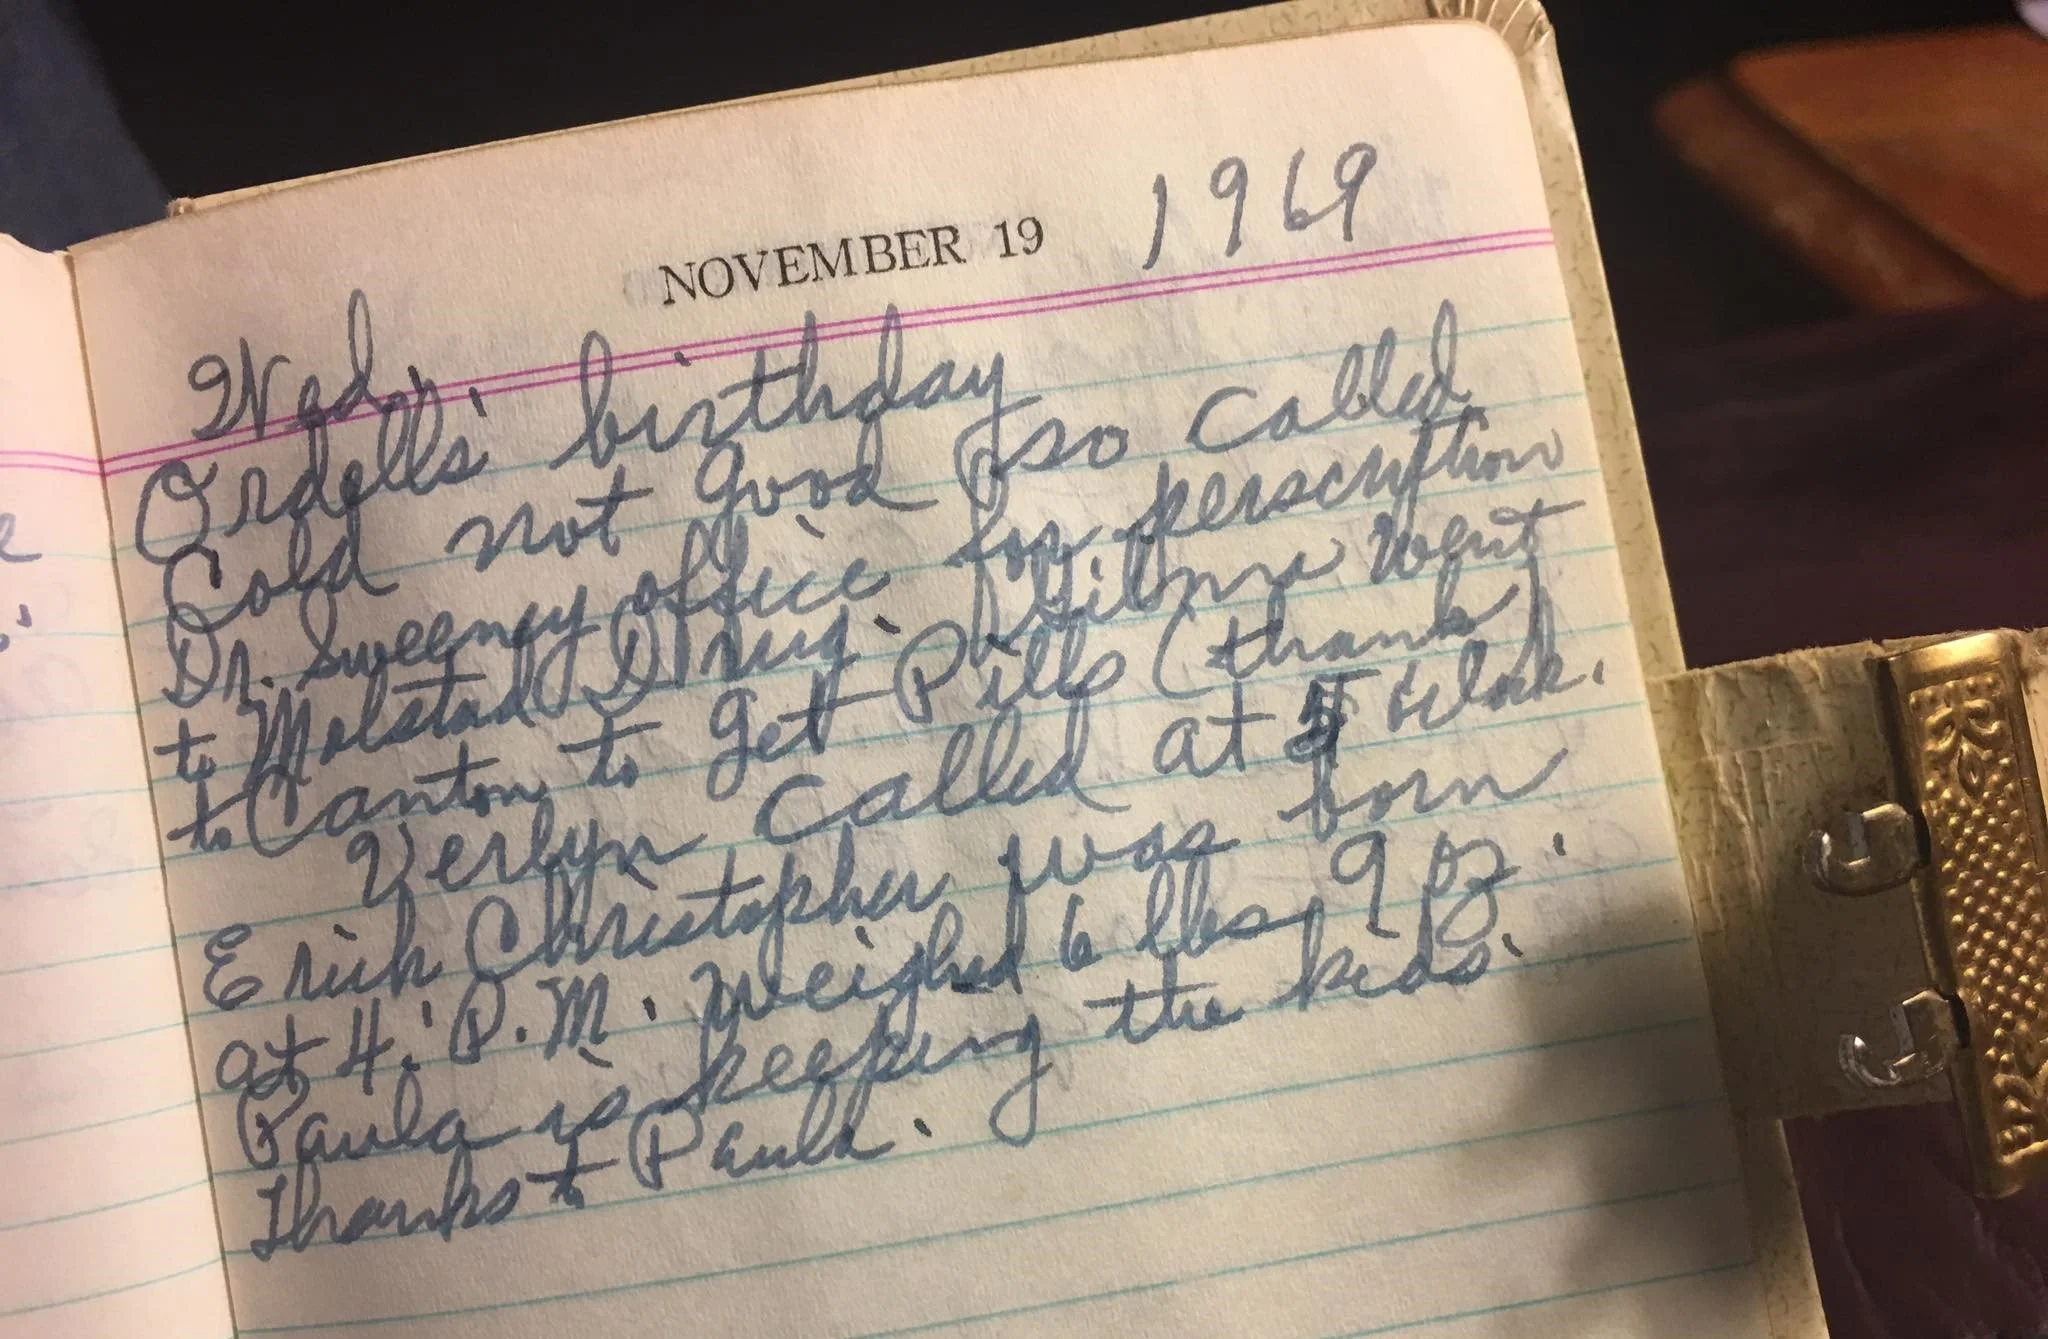 NOVEMBER 19 1969
Wed.
Ordells' birthday
Cold not good so called
Dr. Sweeney office for perscription
to Molstad Drug. Wilma went
to Canton to get Pills (thanks)
Verlyn called at 5 oclock.
Erich Christopher was born
at 4: P.M. Weighed 6 lbs 9 oz.
Paula is keeping the kids.
Thanks to Paula.